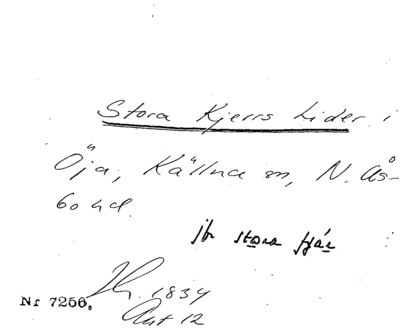 Stora Kjerrs Lider i
Öja, Källna sn, N. Ås-
bo hd.
jfr stora fjär
1834
Nr 7256.
Akt 12